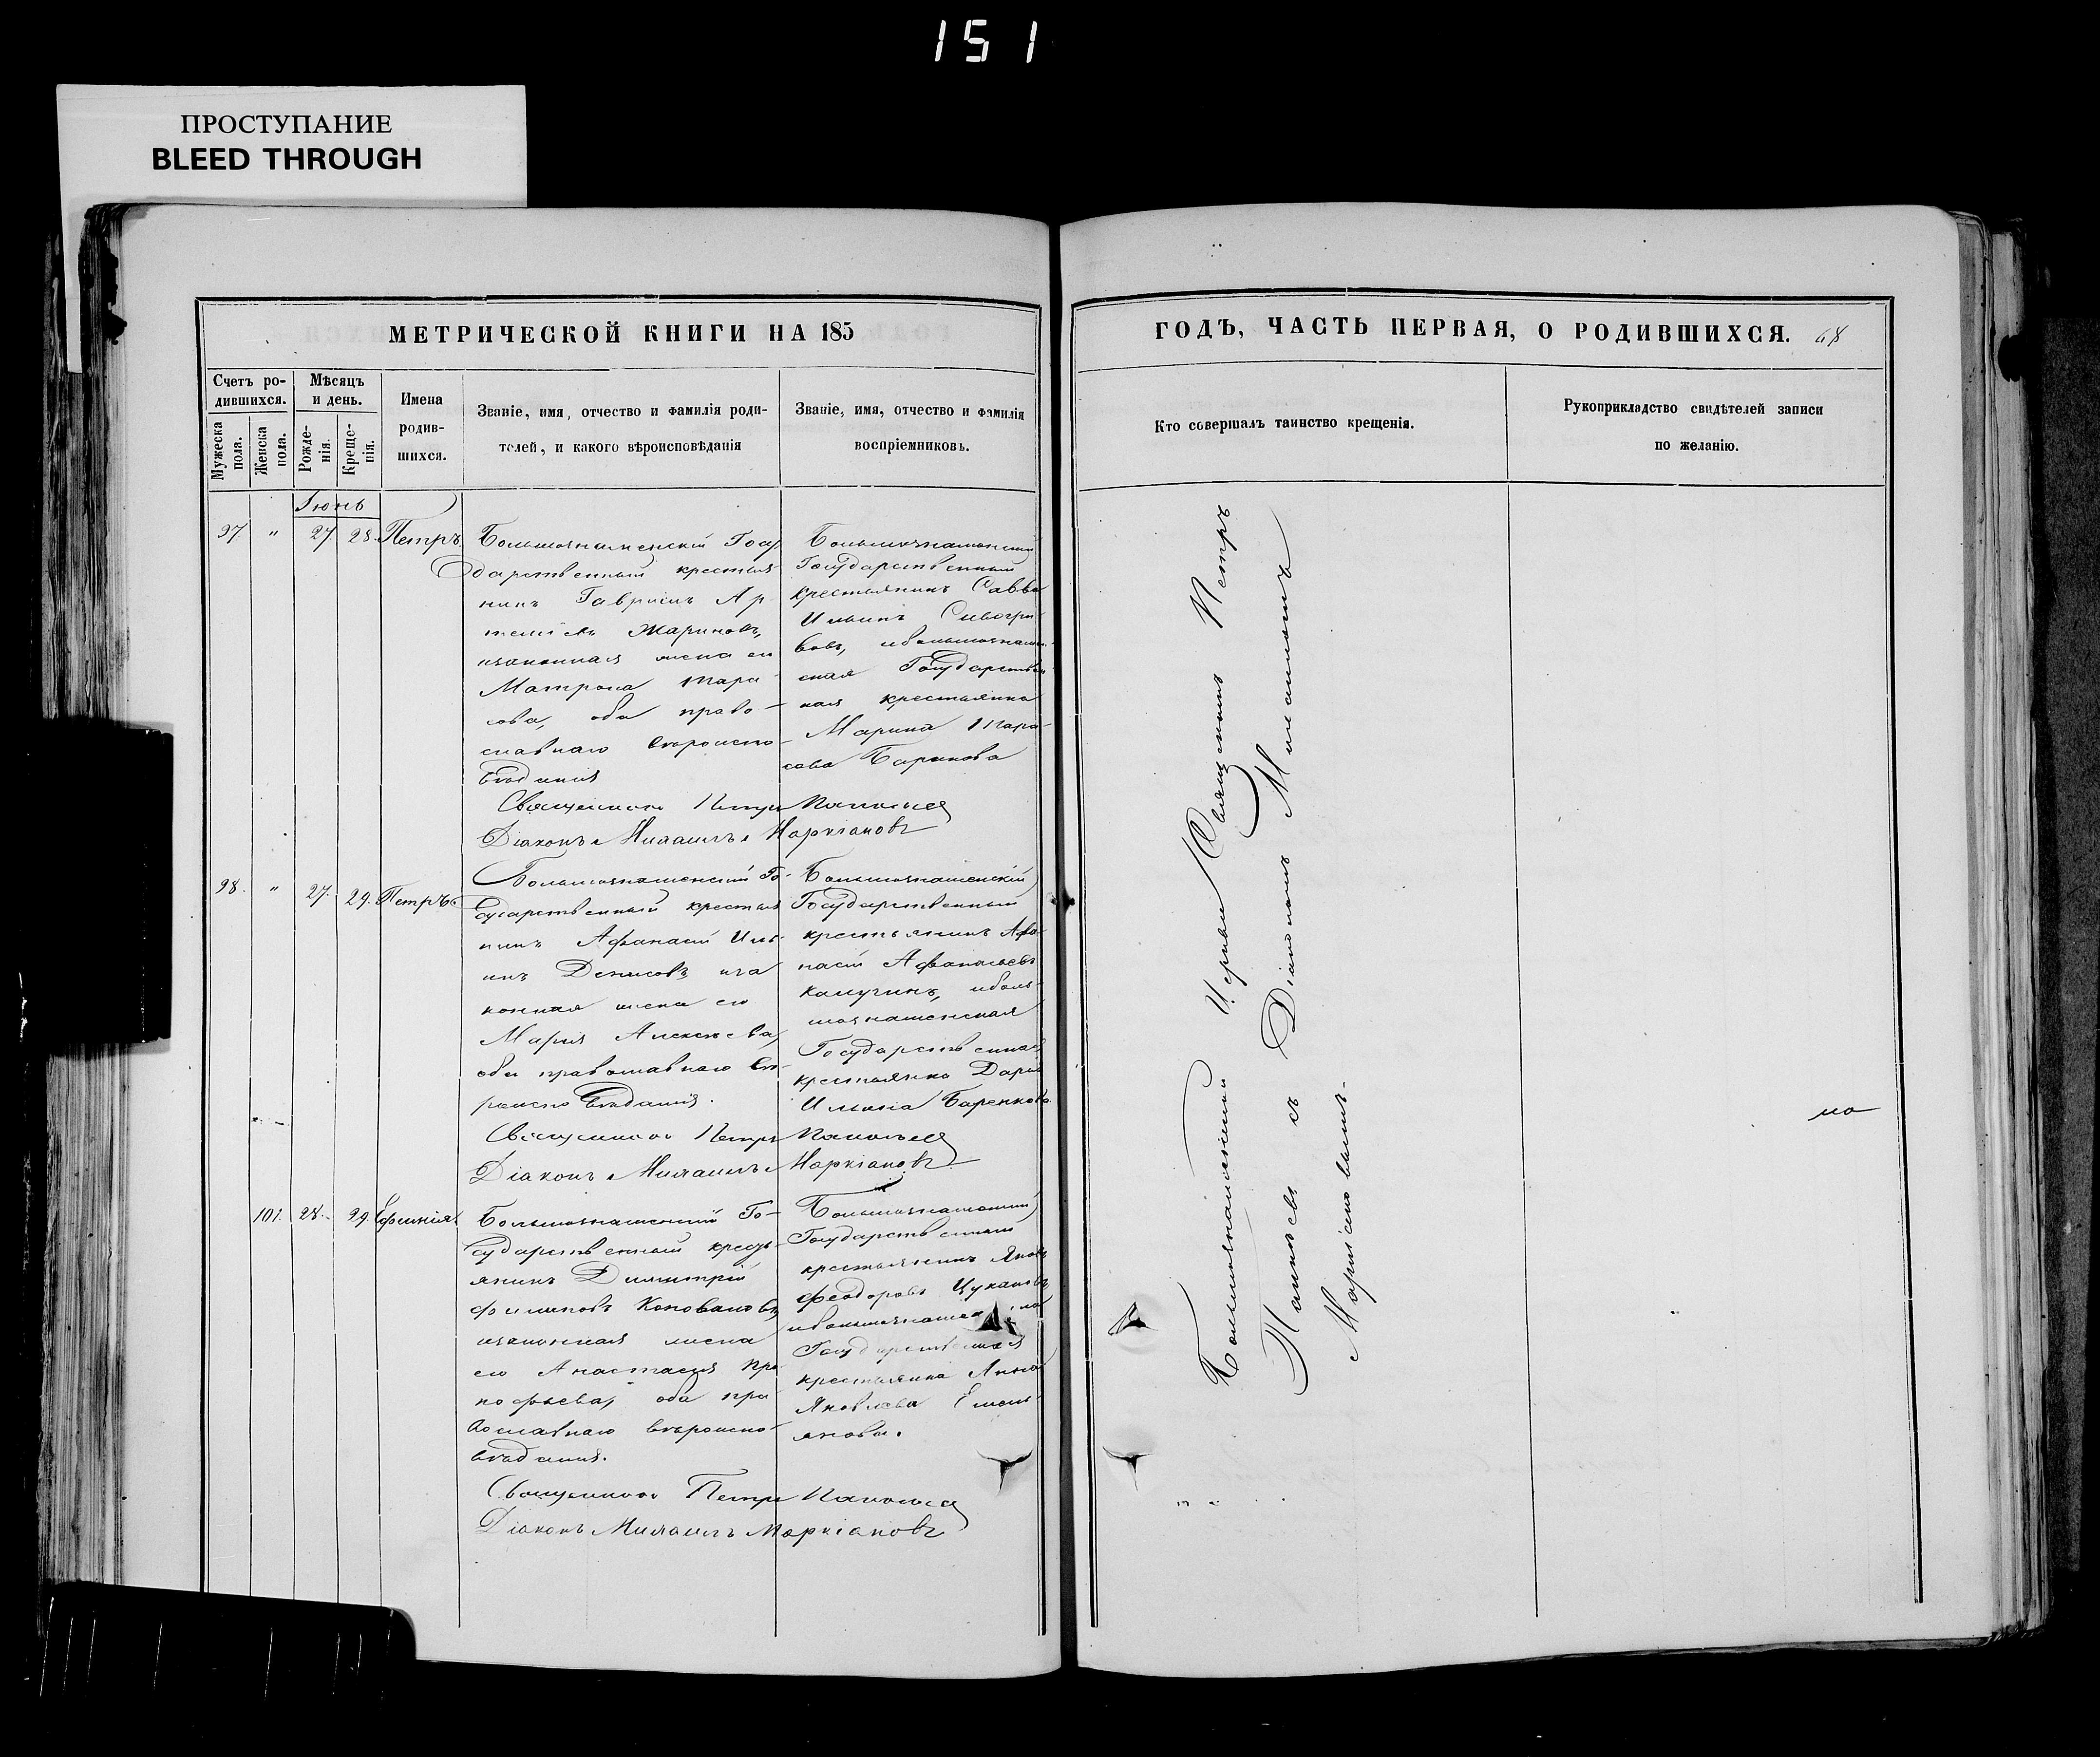 151
ПРОСТУПАНИЕ
BLEED THROUGH
МЕТРИЧЕСКОЙ КНИГИ НА 185
Счетъ ро-
дившихся.
Мужеска
пола.
Женска
пола.
Мѣсяцъ
и день.
Рожде-
нія.
Креще-
нія.
Имена
родив-
шихся.
Званіе, имя, отчество и фамилія роди-
телей, и какого вѣроисповѣданія
Званіе, имя, отчество и фамилія
воспріемниковъ.
Іюнь
97. " 27. 28. Петръ
Большознаменскій Госу
дарственный крестья
нинъ Гавріилъ Ар
темьевъ Жариновъ,
изаконная жена его
Матрона Тара-
сова, оба право-
славнаго вѣроиспо-
вѣданія
Большознаменскій
Государственный
крестьянинъ Савва
Ильинъ Сивогри-
вовъ, ибольшознамен-
ская Государствен
ная крестьянка
Марина Тара-
сова Баринова
Священникъ Петръ
Діаконъ Михаилъ Маркіановъ
98. " 27. 29. Петръ
Большознаменскій Го-
сударственный крестья
нинъ Афанасій Иль-
инъ Денисовъ иза
конная жена его
Марія Алексѣева,
оба православнаго вѣ-
роисповѣданія.
Большознаменскій
Государственный
крестьянинъ Афа-
насій Афанасьевъ
Калугинъ, иболь-
шознаменская
Государственная
крестьянка Дарья
Ильина Баренкова
Священникъ Петръ
Діаконъ Михаилъ Маркіановъ
101. 28. 29. Евфимія
Большознаменскій Го-
сударственный кресть-
янинъ Димитрій
Филиповъ Коноваловъ,
изаконная жена
его Анастасія Про
кофьева, оба пра
вославнаго вѣроиспо-
вѣданія.
Большознаменскій
Государственный
крестьянинъ Яковъ
Феодоровъ Цукановъ
ибольшознаменская
Государственная
крестьянка Анна
Яковлева Емель-
янова.
Священникъ Петръ
Діаконъ Михаилъ Маркіановъ
ГОДЪ, ЧАСТЬ ПЕРВАЯ, О РОДИВШИХСЯ. 68
Кто совершалъ таинство крещенія.
Рукоприкладство свидѣтелей записи
по желанію.
Большознаменской Церкви Священникъ Петръ
съ Діакономъ Михаиломъ
Маркіановымъ.